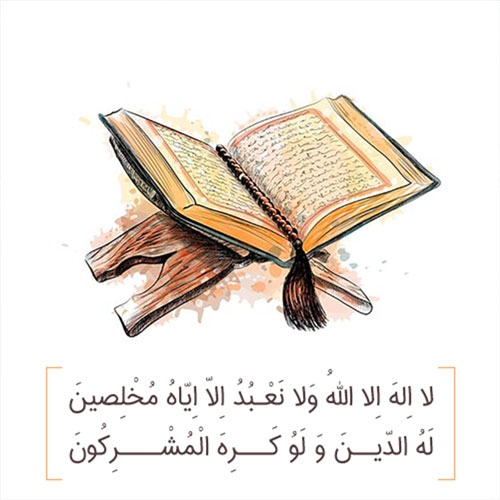 لا اِلهَ اِلا اللهُ وَلا نَعْبُدُ اِلاّ اِیّاهُ مُخْلِصینَ
لَهُ الدّینَ وَ لَوُ کَرِهَ الْمُشْرِکُونَ